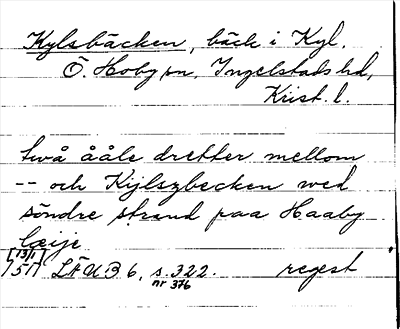 Kylsbäcken, bäck i Kyl,
Ö. Hoby sn, Ingelstads hd,
Krist. l.
två ååle dretter mellom
-- och Kijlszbecken wed
söndre strand paa Haaby
læije
[13/1
751] LÆUB 6, s. 322. regest
nr 376